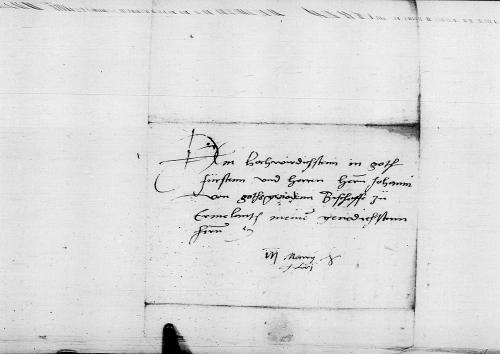 Dem hochwirdichsten in goth
fürsten und herren hern Johann
von goths Bisschoff zu
Ermelandt meinem genedichsten
hern